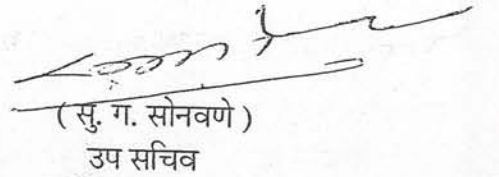 ( सु. ग. सोनवणे )
उप सचिव